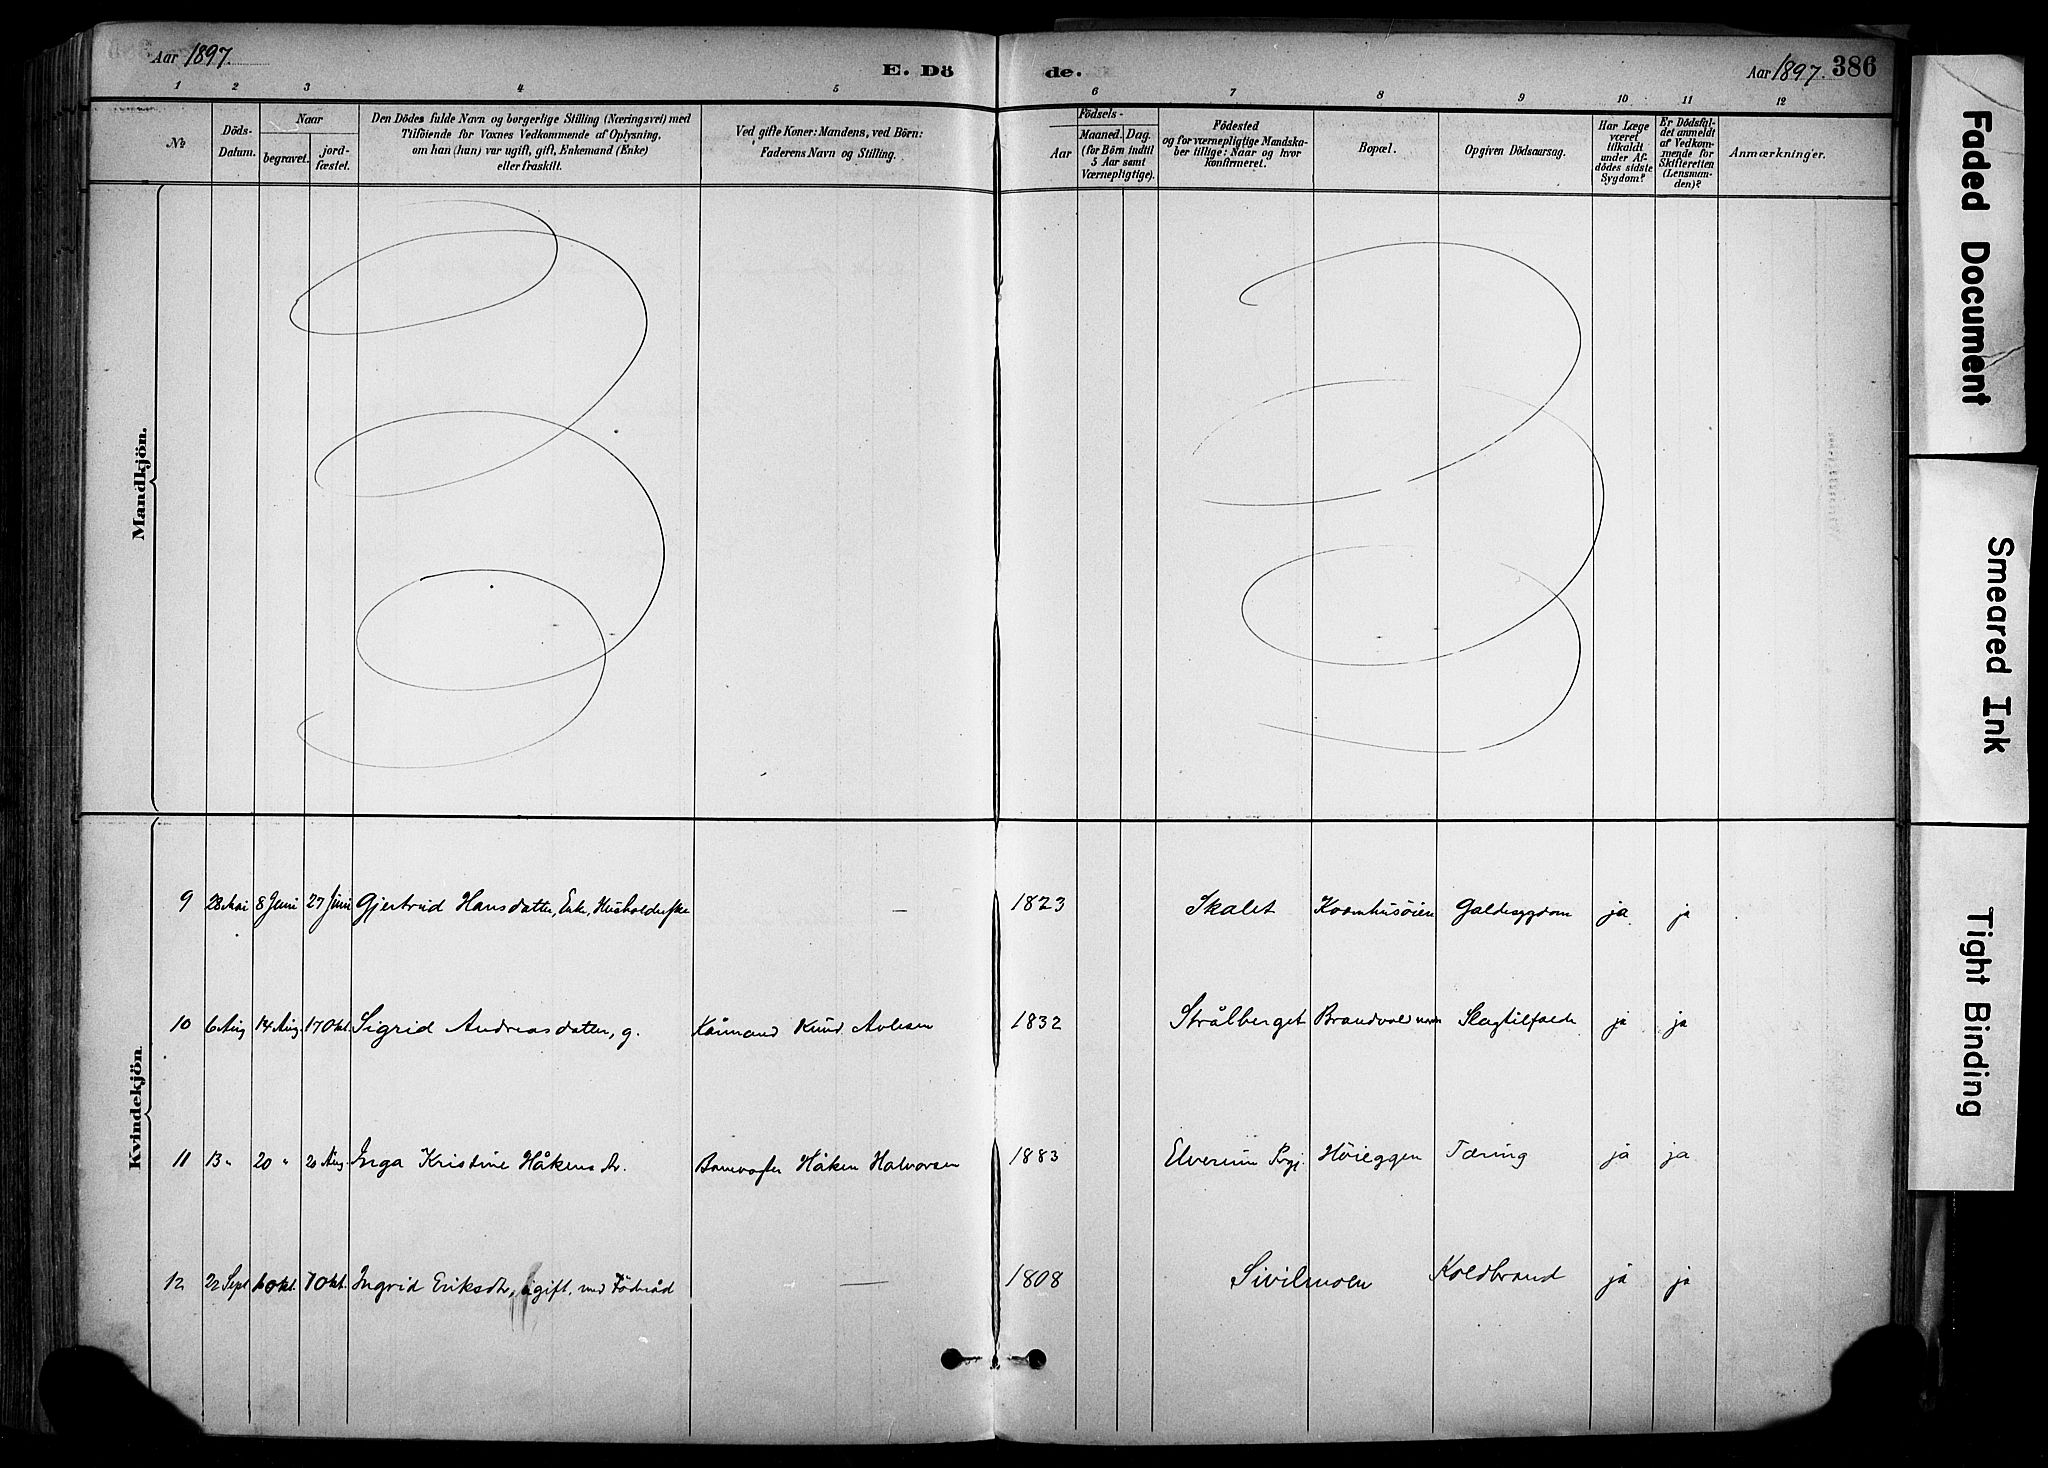 Aar 1897.
E. Dö
de.
Aar 1897. 386
1 2 3 4 5 6 7 8 9 10 11 12
№
Döds-
Datum.
Naar
begravet.
jord-
fæstet.
Den Dödes fulde Navn og borgerlige Stilling (Næringsvei) med
Tilföiende for Voxnes Vedkommende af Oplysning,
om han (hun) var ugift, gift, Enkemand (Enke)
eller fraskilt.
Ved gifte Koner: Mandens, ved Börn:
Faderens Navn og Stilling.
Födsels-
Aar
Maaned. Dag.
(for Börn indtil
5 Aar samt
Værnepligtige).
Födested
og for værnepligtige Mandska-
ber tillige: Naar og hvor
konfirmeret.
Bopæl.
Opgiven Dödsaarsag.
Har Læge
været
tilkaldt
under Af-
dödes sidste
Sygdom?
Er Dödsfal-
det anmeldt
af Vedkom-
mende for
Skifteretten
(Lensman-
den)?
Anmærkninger.
Mandkjön.
Kvindekjön.
9 28 Mai 8 Juni 27 Juni Gjertrud Hansdatter, Enke, — 1823 Skalet Kornhusöien Galdesygdom ja ja
10 6 Aug 14 Aug. 17 Okt. Sigrid Andreasdatter, g. Kårmand Knud Avlesen 1832 Strålberget Brandvold Slagtilfælde ja ja
11 13 „ 20 „ Aug. Inga Kristine Håkensdr. Banevogter Håken Halvorsen 1883 Elverum Prgj. Höieggen Tæring ja ja
12 22 Sept Okt. Okt. Ingrid Eriksdtr, ugift, med Föderåd — 1808 Sivilmoen Koldbrand ja ja
Faded Document
Smeared Ink
Tight Binding